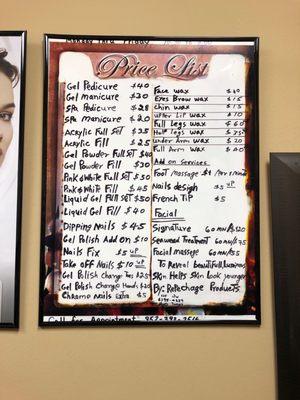 Monday Thru Friday
Price List
Gel Pedicure $40
Gel manicure $30
Spa Pedicure $28
Spa manicure $20
Acrylic Full Set $35
Acrylic Fill $25
Gel Powder Full Set $40
Gel Powder Fill $30
Pink & White Full Set $50
Pink & White Fill $45
Liquid Gel Full Set $50
Liquid Gel Fill $40
Dipping Nails $45
Gel Polish Add on $10
Nails Fix $5 up
Take off Nails $10 up
Gel Polish Change Toes $25
Gel Polish Change Hands $20
Chrome Nails Extra $5
Face wax $40
Eyes Brow wax $15
Chin wax $15
Upper Lip wax $10
Full Legs wax $60
Half legs wax $35
Under Arm wax $20
Full Arm wax $40
Add on Services
Foot Massage $1 / Per 1 minute
Nails design $5 up
French Tip $5
Facial
Signature 60 mn/$120
Seaweed Treatment 60 mn/$95
Facial massage 60 mn/$55
To Reveal beautiful, luminous
Skin Helps Skin Look younger
By: Repechage Products
Call for Appointment